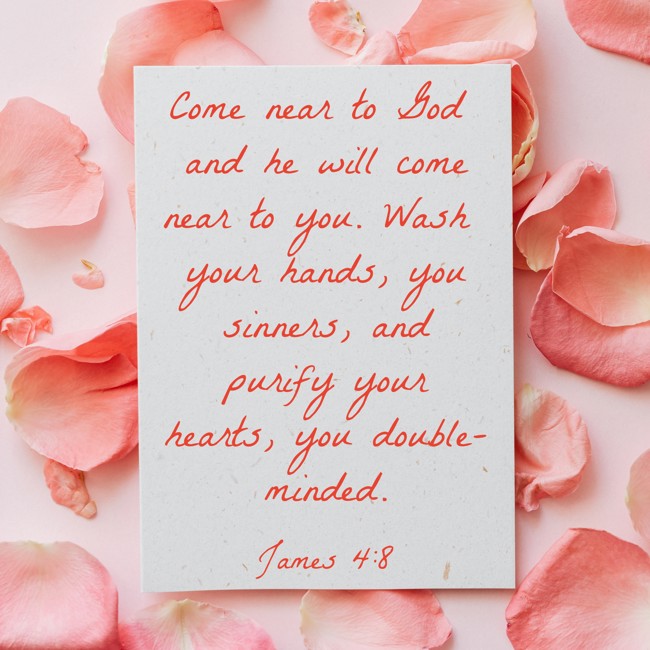 Come near to God
and he will come
near to you. Wash
your hands, you
sinners, and
purify your
hearts, you double-
minded.
James 4:8